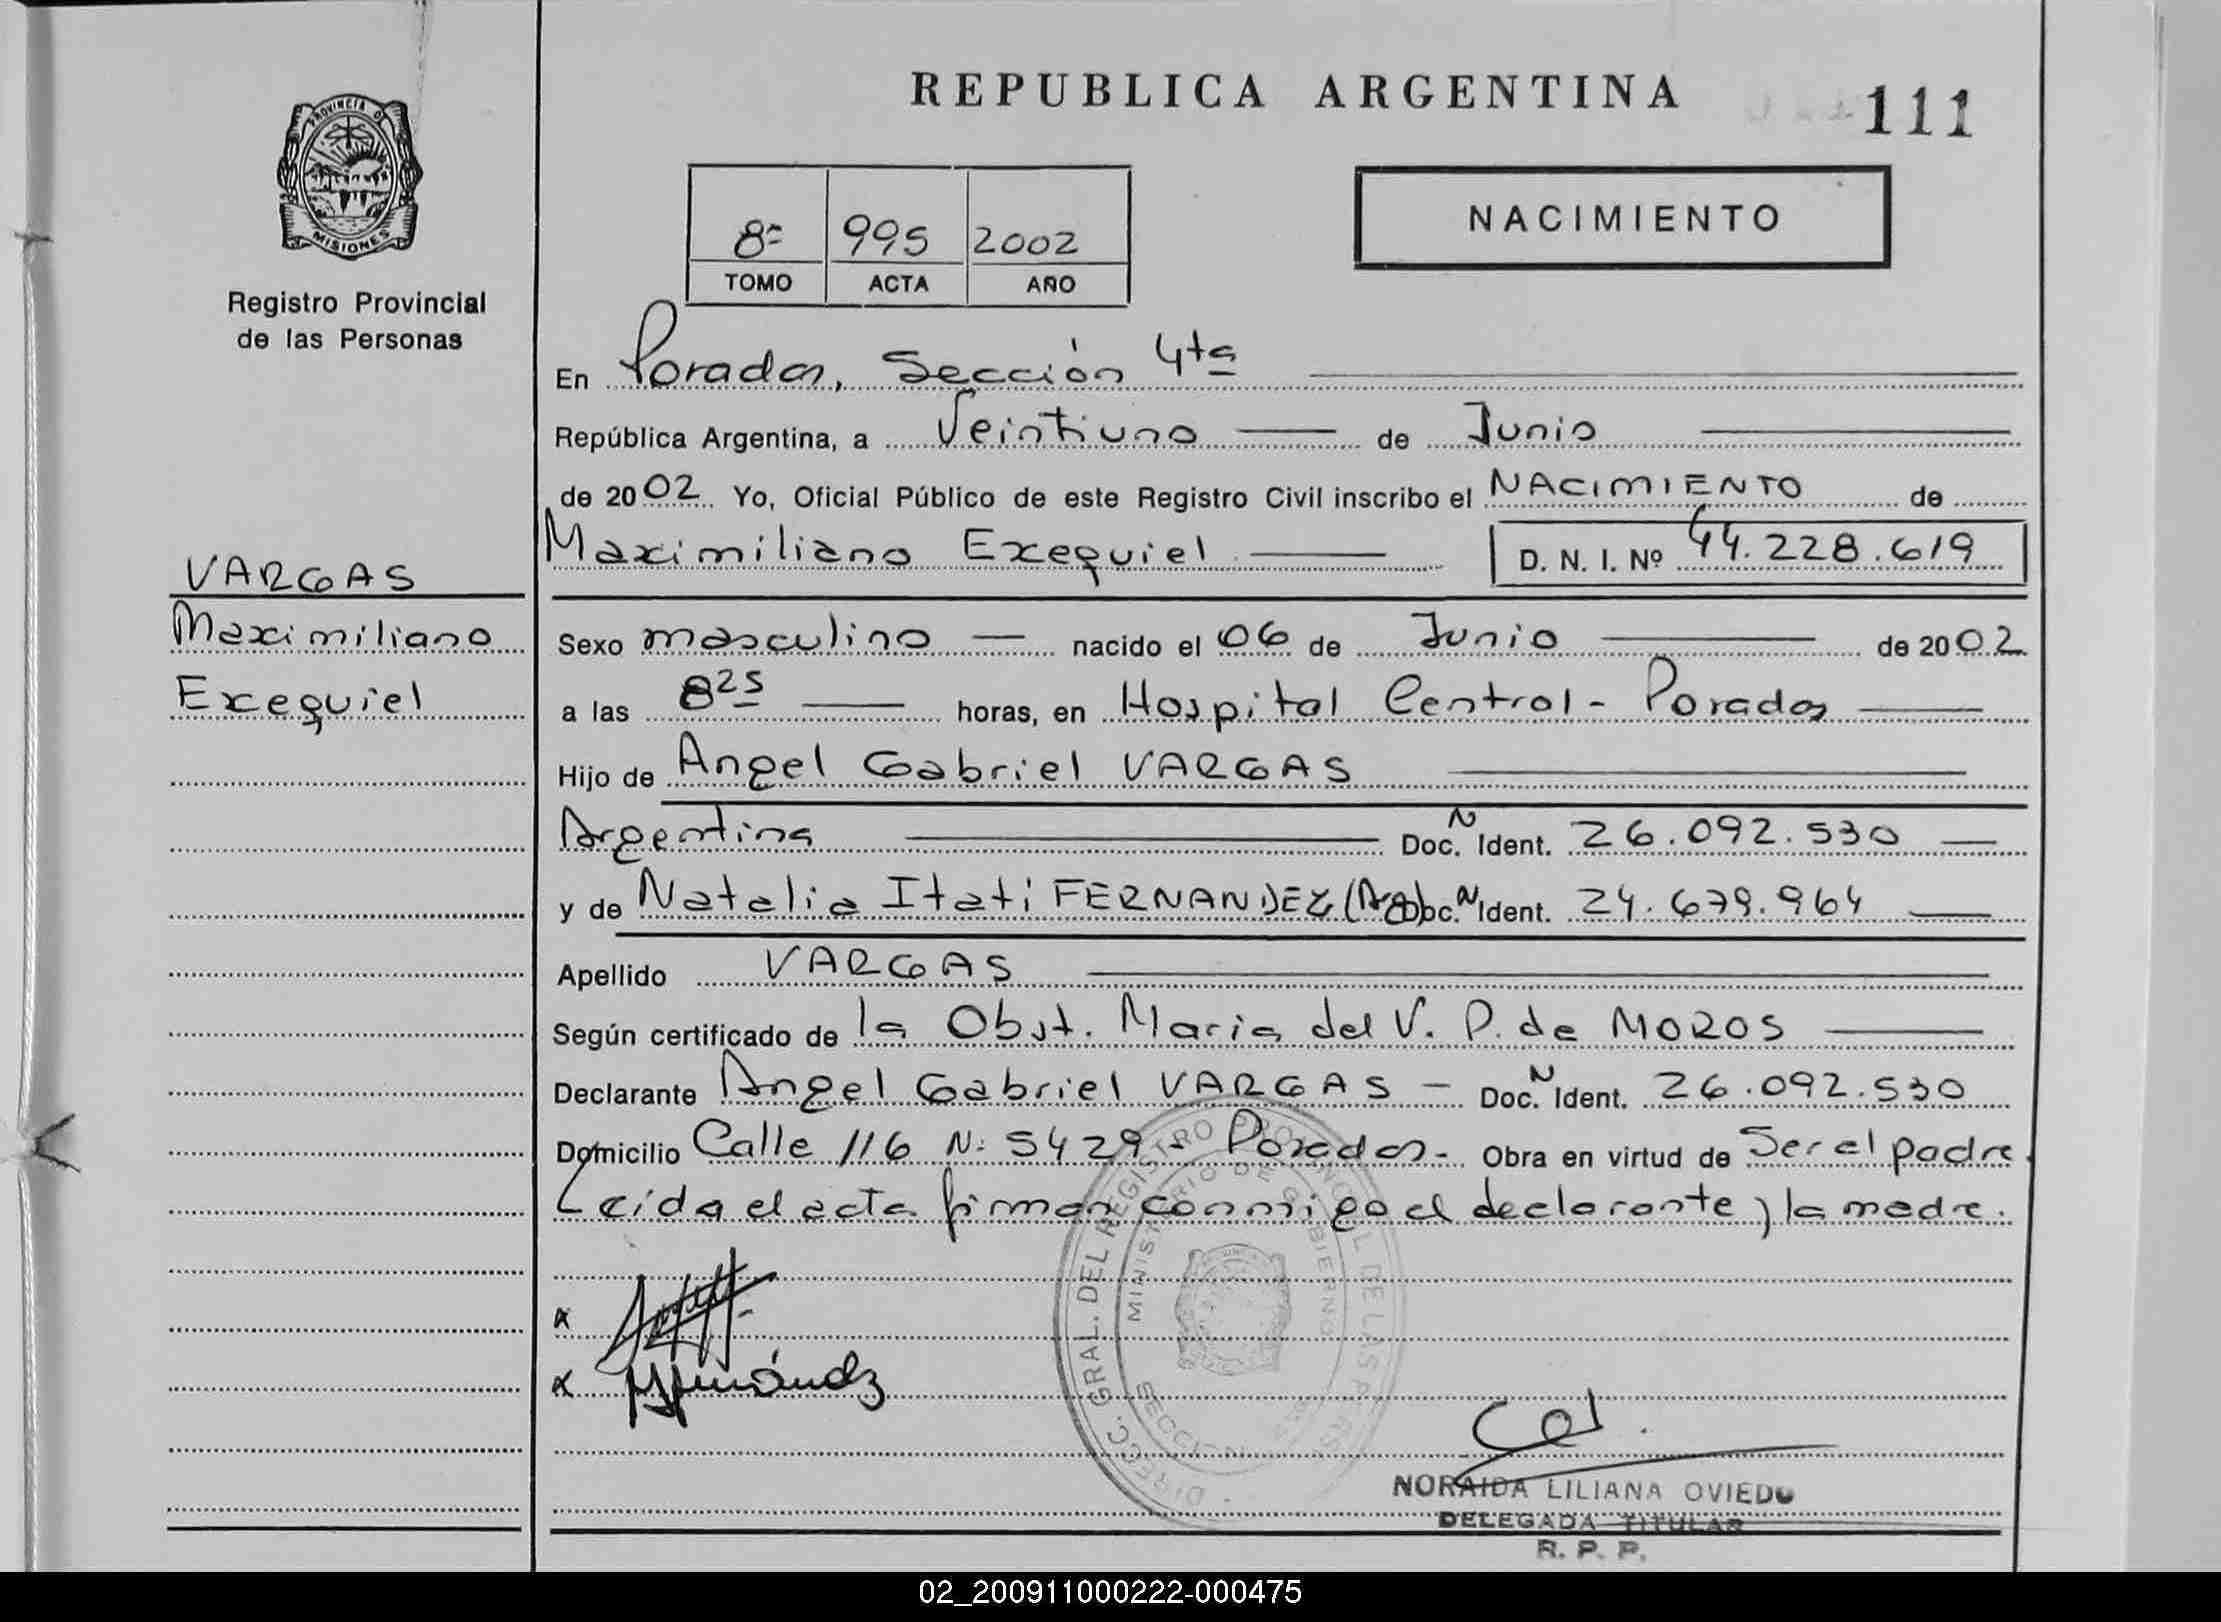 REPUBLICA ARGENTINA
111
PROVINCIA DE
MISIONES
Registro Provincial
de las Personas
8º 995 2002
TOMO ACTA AÑO
NACIMIENTO
En Posadas, Sección 4ta
República Argentina, a Veintiuno de Junio
de 2002 Yo, Oficial Público de este Registro Civil inscribo el NACIMIENTO de
Maximiliano Exequiel D. N. I. Nº 44.228.619
VARGAS
Maximiliano
Exequiel
Sexo masculino nacido el 06 de Junio de 2002
a las 8 25 horas, en Hospital Central - Posadas
Hijo de Angel Gabriel VARGAS
Argentina Doc. N Ident. 26.092.530
y de Natalia Itati FERNANDEZ (Arg) Doc. N Ident. 24.679.964
Apellido VARGAS
Según certificado de la Obst. Maria del V. P. de MOROS
Declarante Angel Gabriel VARGAS - Doc. N Ident. 26.092.530
Domicilio Calle 116 N: 5429 - Posadas - Obra en virtud de Ser el padre.
Leída el acta firman conmigo el declarante y la madre.
DIRECC. GRAL. DEL REGISTRO PROVINCIAL DE LAS PERS
MINISTERIO DE GOBIERNO
SECCION
x
x Fernández
NORAIDA LILIANA OVIEDO
DELEGADA TITULAR
R. P. P.
02_200911000222-000475